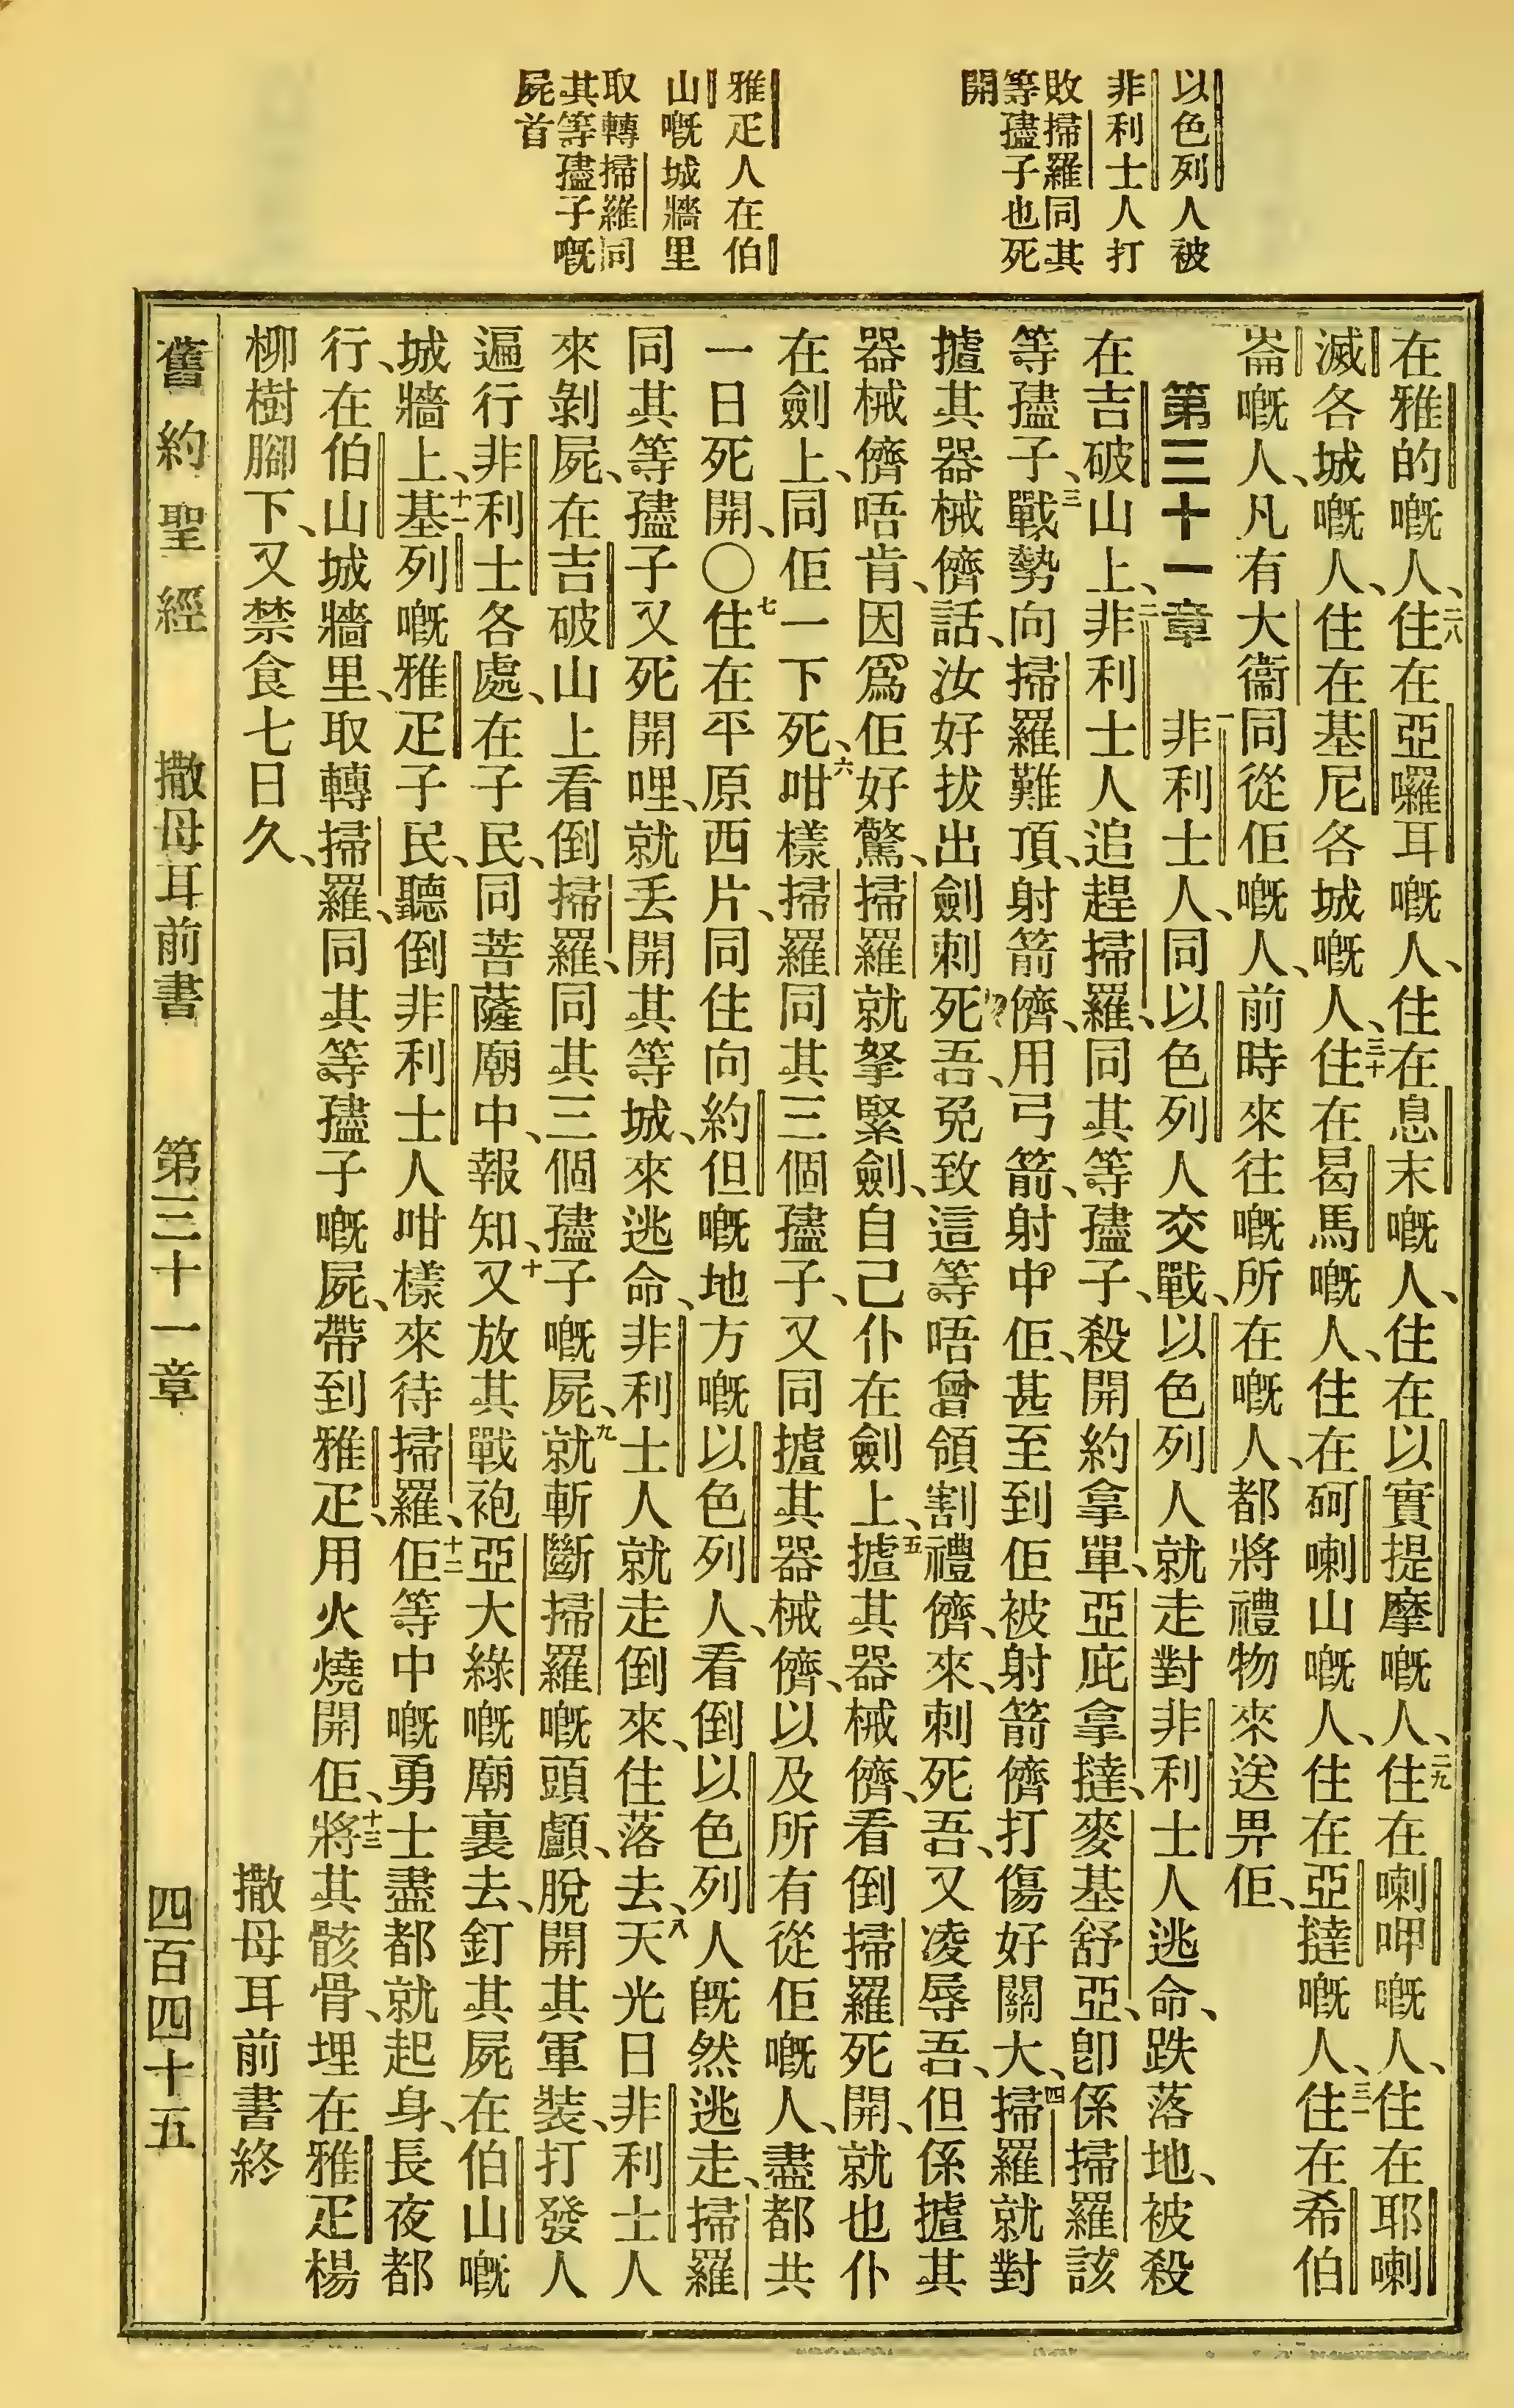 以色列人被
非利士人打
敗掃羅同其
等𡥧子也死
開
雅疋人在伯
山嘅城牆里
取轉掃羅同
其等𡥧子嘅
屍首
在雅的嘅人、二八住在亞囉耳嘅人、住在息末嘅人、住在以實提摩嘅人、二九住在喇呷嘅人、住在耶喇
滅各城嘅人、住在基尼各城嘅人、三十住在曷馬嘅人、住在砢喇山嘅人、住在亞撻嘅人、三一住在希伯
崙嘅人、凡有大衞同從佢嘅人、前時來往嘅所在嘅人、都將禮物來送畀佢、
第三十一章 一非利士人、同以色列人交戰、以色列人就走對非利士人逃命、跌落地、被殺
在吉破山上、二非利士人追趕掃羅、同其等𡥧子、殺開約拿單、亞庇拿撻、麥基舒亞、卽係掃羅該
等𡥧子、三戰勢向掃羅難頂、射箭儕、用弓箭、射中佢、甚至到佢被射箭儕打傷好關大、四掃羅就對
摣其器械儕話、汝好拔出劍刺死吾、免致這等唔曾領割禮儕、來、刺死吾、又凌辱吾、但係摣其
器械儕唔肯、因爲佢好驚、掃羅就拏緊劍、自己仆在劍上、五摣其器械儕、看倒掃羅死開、就也仆
在劍上、同佢一下死、六咁樣掃羅同其三個𡥧子、又同摣其器械儕、以及所有從佢嘅人、盡都共
一日死開、〇七住在平原西片、同住向約但嘅地方嘅以色列人、看倒以色列人旣然逃走、掃羅
同其等𡥧子又死開哩、就丢開其等城、來逃命、非利士人就走倒來、住落去、八天光日非利士人
來剝屍、在吉破山上看倒掃羅、同其三個𡥧子嘅屍、九就斬斷掃羅嘅頭顱、脫開其軍裝、打發人
遍行非利士各處、在子民、同菩薩廟中、報知、十又放其戰袍亞大綠嘅廟裏去、釘其屍在伯山嘅
城牆上、十一基列嘅雅疋子民、聽倒非利士人咁樣來待掃羅、十二佢等中嘅勇士盡都就起身、長夜都
行、在伯山城牆里、取轉掃羅、同其等𡥧子嘅屍、帶到雅疋、用火燒開佢、十三將其骸骨、埋在雅疋楊
柳樹腳下、又禁食七日久、
撒母耳前書終
舊約聖經 撒母耳前書 第三十一章 四百四十五